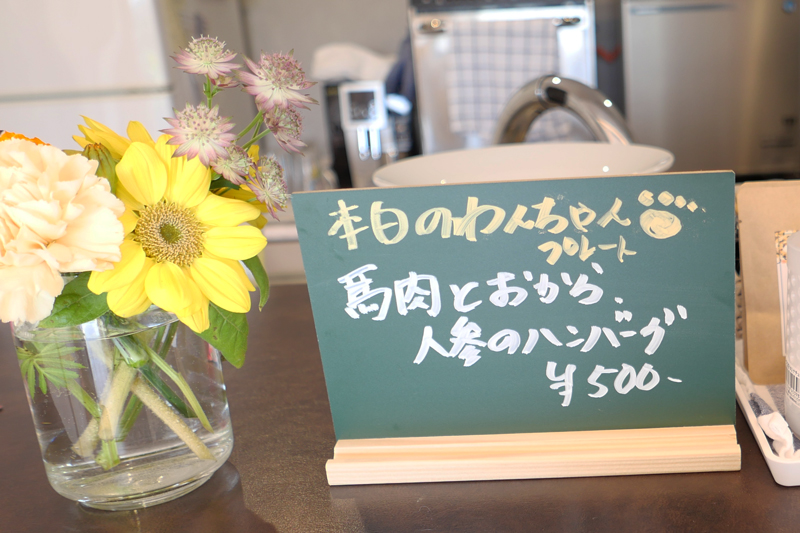 本日のわんちゃん
プレート
馬肉とおから、
人参のハンバーグ
¥500-